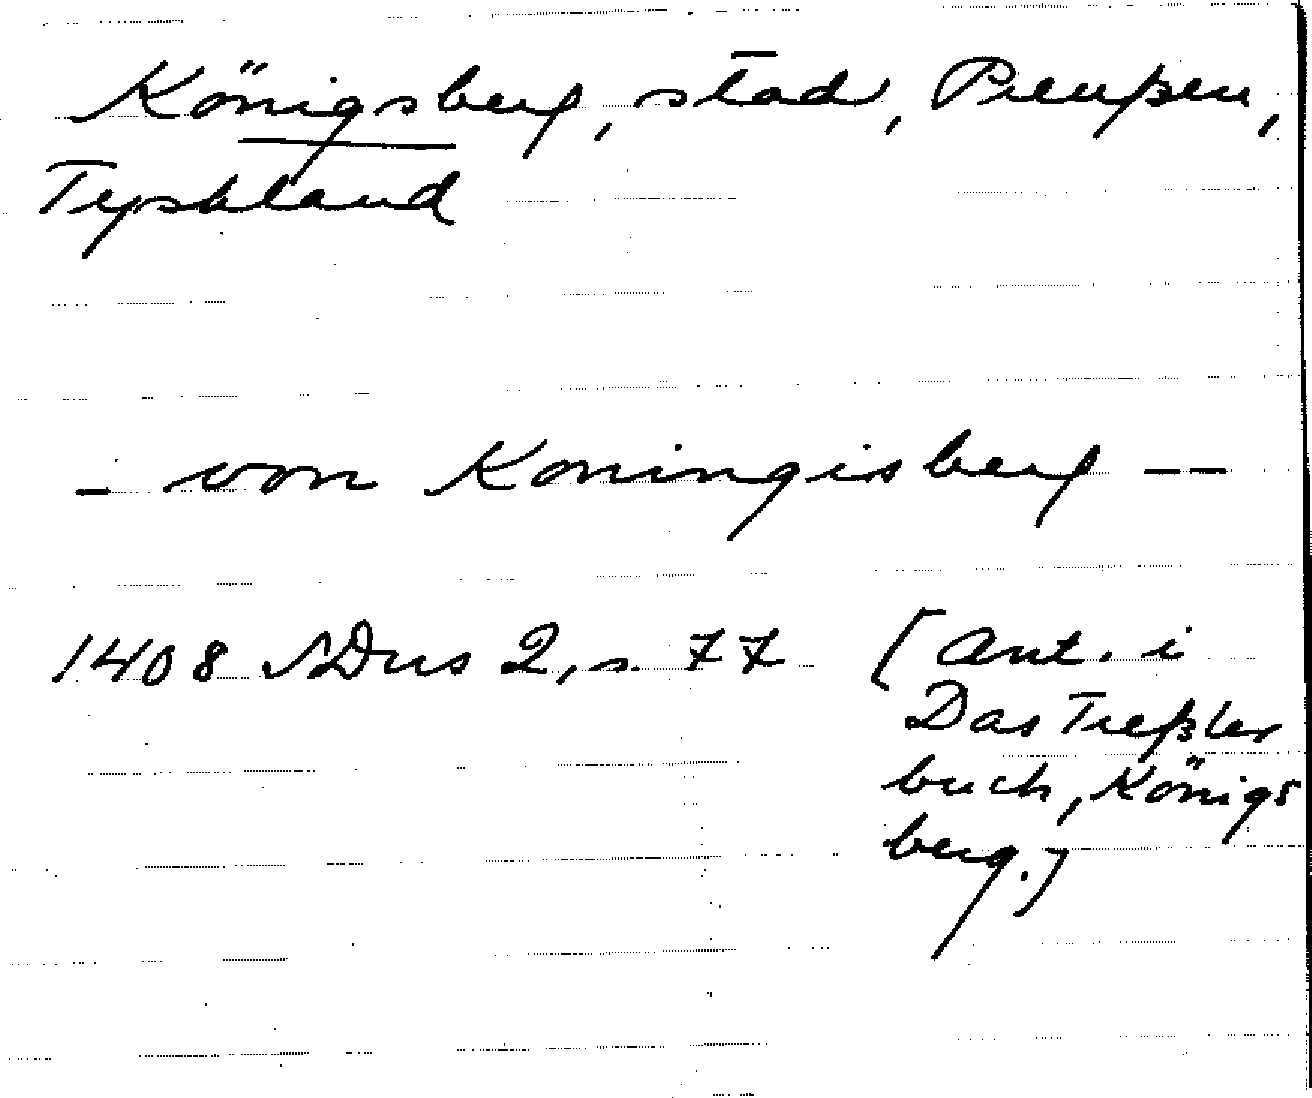 Königsberg, stad, Preußen,
Tyskland
- von Koningisberg -
1408 SDns 2, s. 77 [Ant. i
Das Treßler
buch, Königs
berg.]